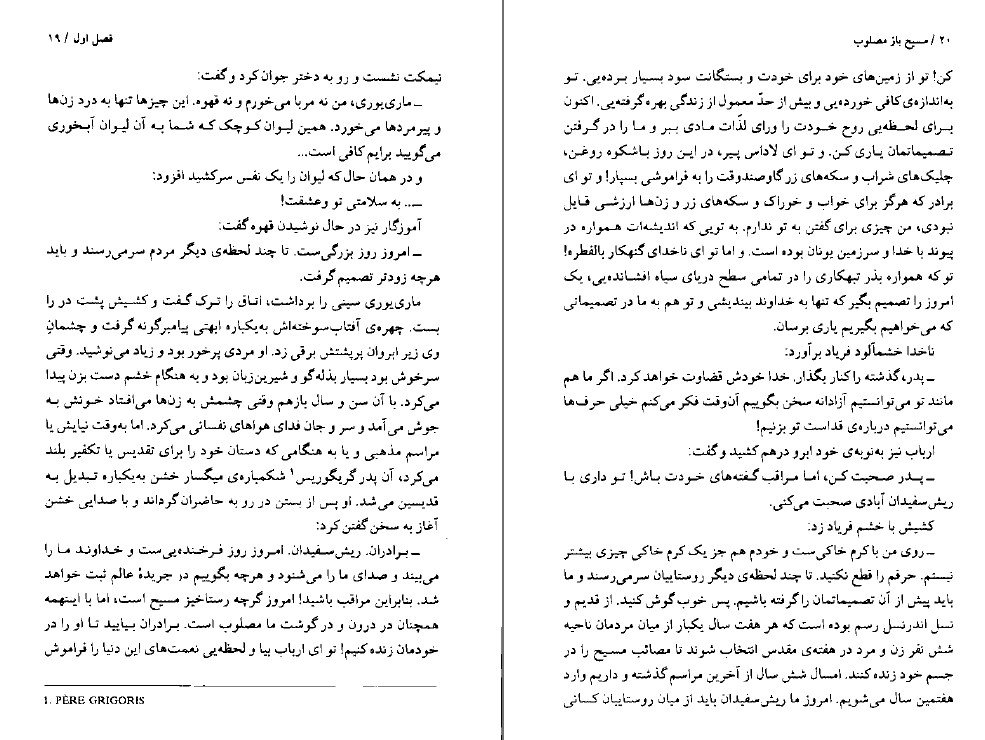 فصل اول / ۱۹
نیمکت نشست و رو به دختر جوان کرد و گفت:
ـ ماری‌یوری، من نه مربا می‌خورم و نه قهوه. این چیزها تنها به درد زن‌ها
و پیرمردها می‌خورد. همین لیوان کوچک که شما به آن لیوان آبخوری
می‌گویید برایم کافی است...
و در همان حال که لیوان را یک نفس سرکشید افزود:
ـ.. به سلامتی تو و عشقت!
آموزگار نیز در حال نوشیدن قهوه گفت:
ـ امروز روز بزرگی‌ست. تا چند لحظه‌ی دیگر مردم سرمی‌رسند و باید
هرچه زودتر تصمیم گرفت.
ماری‌یوری سینی را برداشت، اتاق را ترک گفت و کشیش پشت در را
بست. چهره‌ی آفتاب‌سوخته‌اش به‌یکباره ابهتی پیامبرگونه گرفت و چشمانِ
وی زیر ابروان پرپشتش برقی زد. او مردی پرخور بود و زیاد می‌نوشید. وقتی
سرخوش بود بسیار بذله‌گو و شیرین‌زبان بود و به هنگام خشم دست بزن پیدا
می‌کرد. با آن سن و سال بازهم وقتی چشمش به زن‌ها می‌افتاد خونش به
جوش می‌آمد و سر و جان فدای هواهای نفسانی می‌کرد. اما به‌وقت نیایش یا
مراسم مذهبی و یا به هنگامی که دستان خود را برای تقدیس یا تکفیر بلند
می‌کرد، آن پدر گریگوریس۱ شکمباره‌ی میگسار خشن به‌یکباره تبدیل به
قدیسین می‌شد. او پس از بستن در رو به حاضران گرداند و با صدایی خشن
آغاز به سخن گفتن کرد:
ـ برادران. ریش‌سفیدان. امروز روز فرخنده‌یی‌ست و خداوند ما را
می‌بیند و صدای ما را می‌شنود و هرچه بگوییم در جریدهٔ عالم ثبت خواهد
شد. بنابراین مراقب باشید! امروز گرچه رستاخیز مسیح است، اما با اینهمه
همچنان در درون و در گوشت ما مصلوب است. برادران بیایید تا او را در
خودمان زنده کنیم! تو ای ارباب بیا و لحظه‌یی نعمت‌های این دنیا را فراموش
1. PÈRE GRIGORIS
۲۰ / مسیح باز مصلوب
کن! تو از زمین‌های خود برای خودت و بستگانت سود بسیار برده‌یی. تو
به‌اندازه‌ی کافی خورده‌یی و بیش از حدّ معمول از زندگی بهره گرفته‌یی. اکنون
برای لحظه‌یی روح خودت را ورای لذّات مادی ببر و ما را در گرفتن
تصمیماتمان یاری کن. و تو ای لاداس پیر، در این روز باشکوه روغن،
چلیک‌های شراب و سکه‌های زر گاوصندوقت را به فراموشی بسپار! و تو ای
برادر که هرگز برای خواب و خوراک و سکه‌های زر و زن‌ها ارزشی قایل
نبودی، من چیزی برای گفتن به تو ندارم. به تویی که اندیشه‌ات همواره در
پیوند با خدا و سرزمین یونان بوده است. و اما تو ای ناخدای گنهکار بالفطره!
تو که همواره بذر تبهکاری را در تمامی سطح دریای سیاه افشانده‌یی، یک
امروز را تصمیم بگیر که تنها به خداوند بیندیشی و تو هم به ما در تصمیماتی
که می‌خواهیم بگیریم یاری برسان.
ناخدا خشمآلود فریاد برآورد:
ـ پدر، گذشته را کنار بگذار. خدا خودش قضاوت خواهد کرد. اگر ما هم
مانند تو می‌توانستیم آزادانه سخن بگوییم آن‌وقت فکر می‌کنم خیلی حرف‌ها
می‌توانستیم درباره‌ی قداست تو بزنیم!
ارباب نیز به‌نوبه‌ی خود ابرو درهم کشید و گفت:
ـ پدر صحبت کن، اما مراقب گفته‌های خودت باش! تو داری با
ریش‌سفیدان آبادی صحبت می‌کنی.
کشیش با خشم فریاد زد:
ـ روی من با کرم خاکی‌ست و خودم هم جز یک کرم خاکی چیزی بیشتر
نیستم. حرفم را قطع نکنید. تا چند لحظه‌ی دیگر روستاییان سرمی‌رسند و ما
باید پیش از آن تصمیماتمان را گرفته باشیم. پس خوب گوش کنید. از قدیم و
نسل اندرنسل رسم بوده است که هر هفت سال یکبار از میان مردمان ناحیه
شش نفر زن و مرد در هفته‌ی مقدس انتخاب شوند تا مصائب مسیح را در
جسم خود زنده کنند. امسال شش سال از آخرین مراسم گذشته و داریم وارد
هفتمین سال می‌شویم. امروز ما ریش‌سفیدان باید از میان روستاییان کسانی